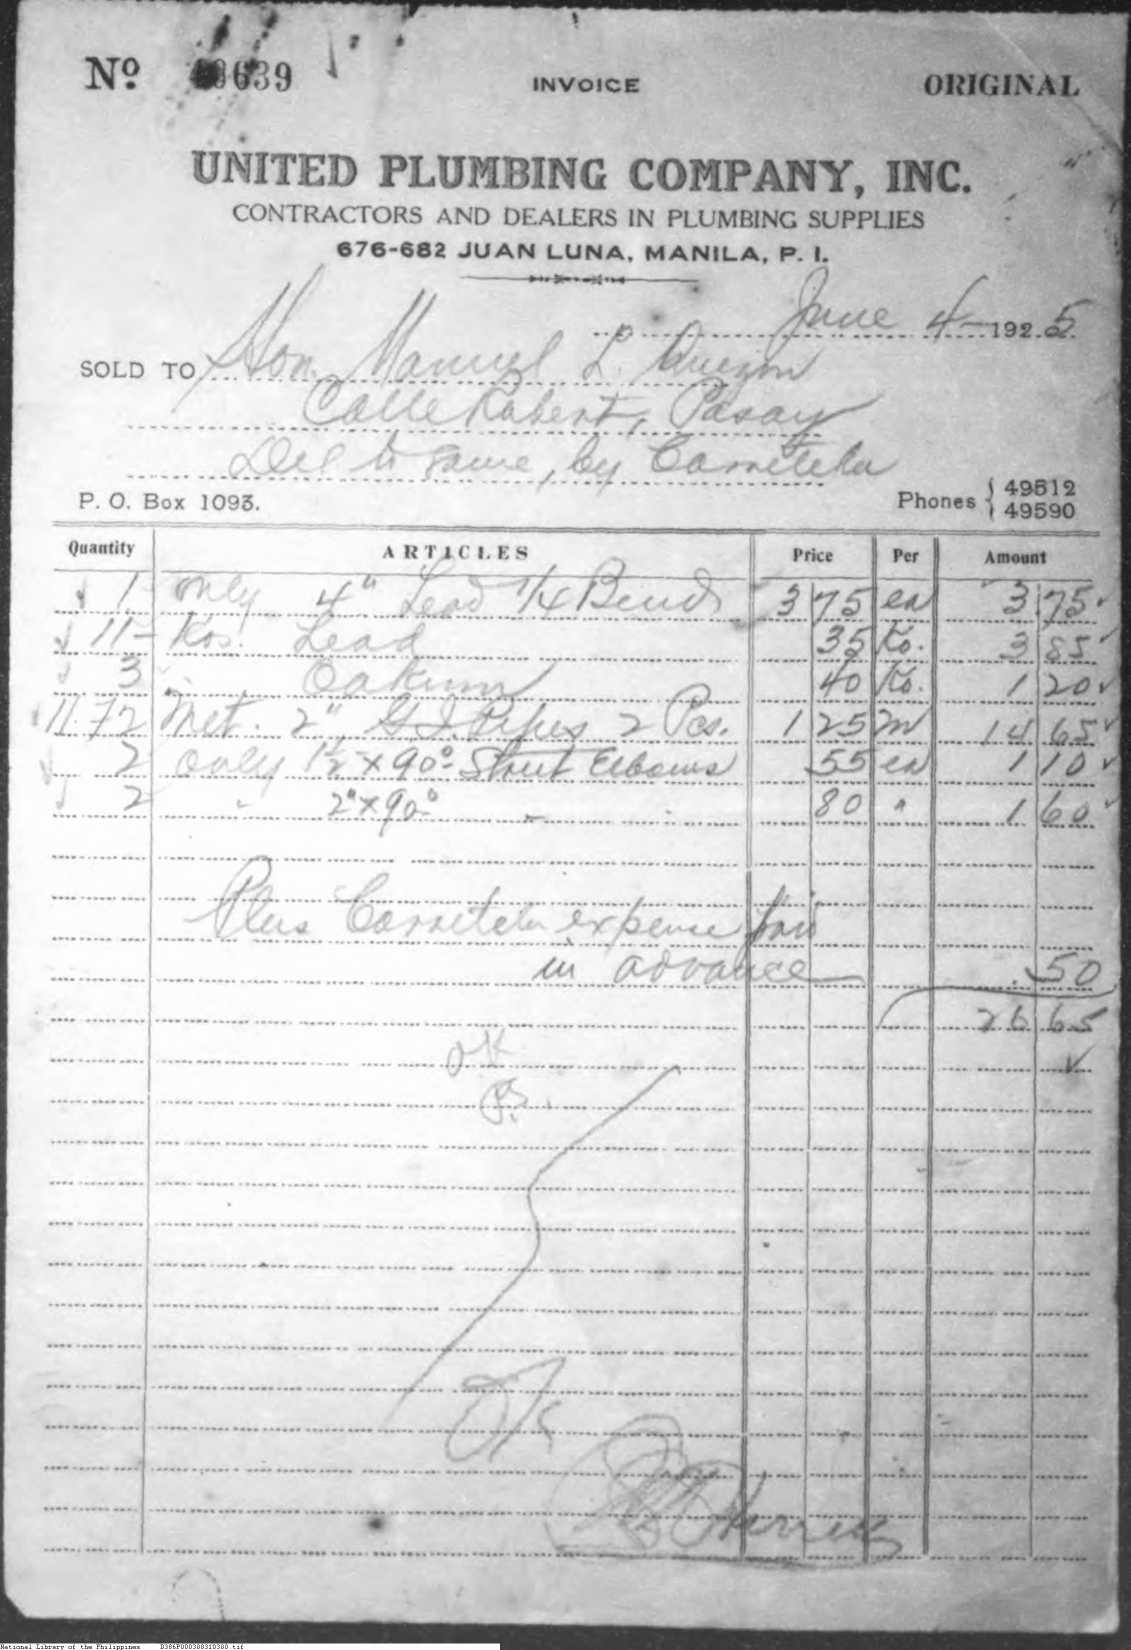 Nº 639
INVOICE
ORIGINAL
UNITED PLUMBING COMPANY, INC.
CONTRACTORS AND DEALERS IN PLUMBING SUPPLIES
676-682 JUAN LUNA, MANILA, P. I.
June 4- 1925
SOLD TO Hon. Manuel L. Quezon
Calle Robert, Pasay
Del to same, by Carretela
P. O. Box 1093.
Phones { 49512
49590
Quantity ARTICLES Price Per Amount
1 only 4" Lead 1/4 Bend 3 75 ea 3 75
11- Kos. Lead 35 Ko. 3 85
3 " Oakum 40 Ko. 1 20
11.72 Met. 2" G.I. Pipes 2 Pcs. 1 25 m 14 65
2 only 1½ x 90° Street Elbows 55 ea 1 10
2 " 2" x 90° " 80 " 1 60
Plus Carretela expense paid
in advance .50
26 65
OK
OK